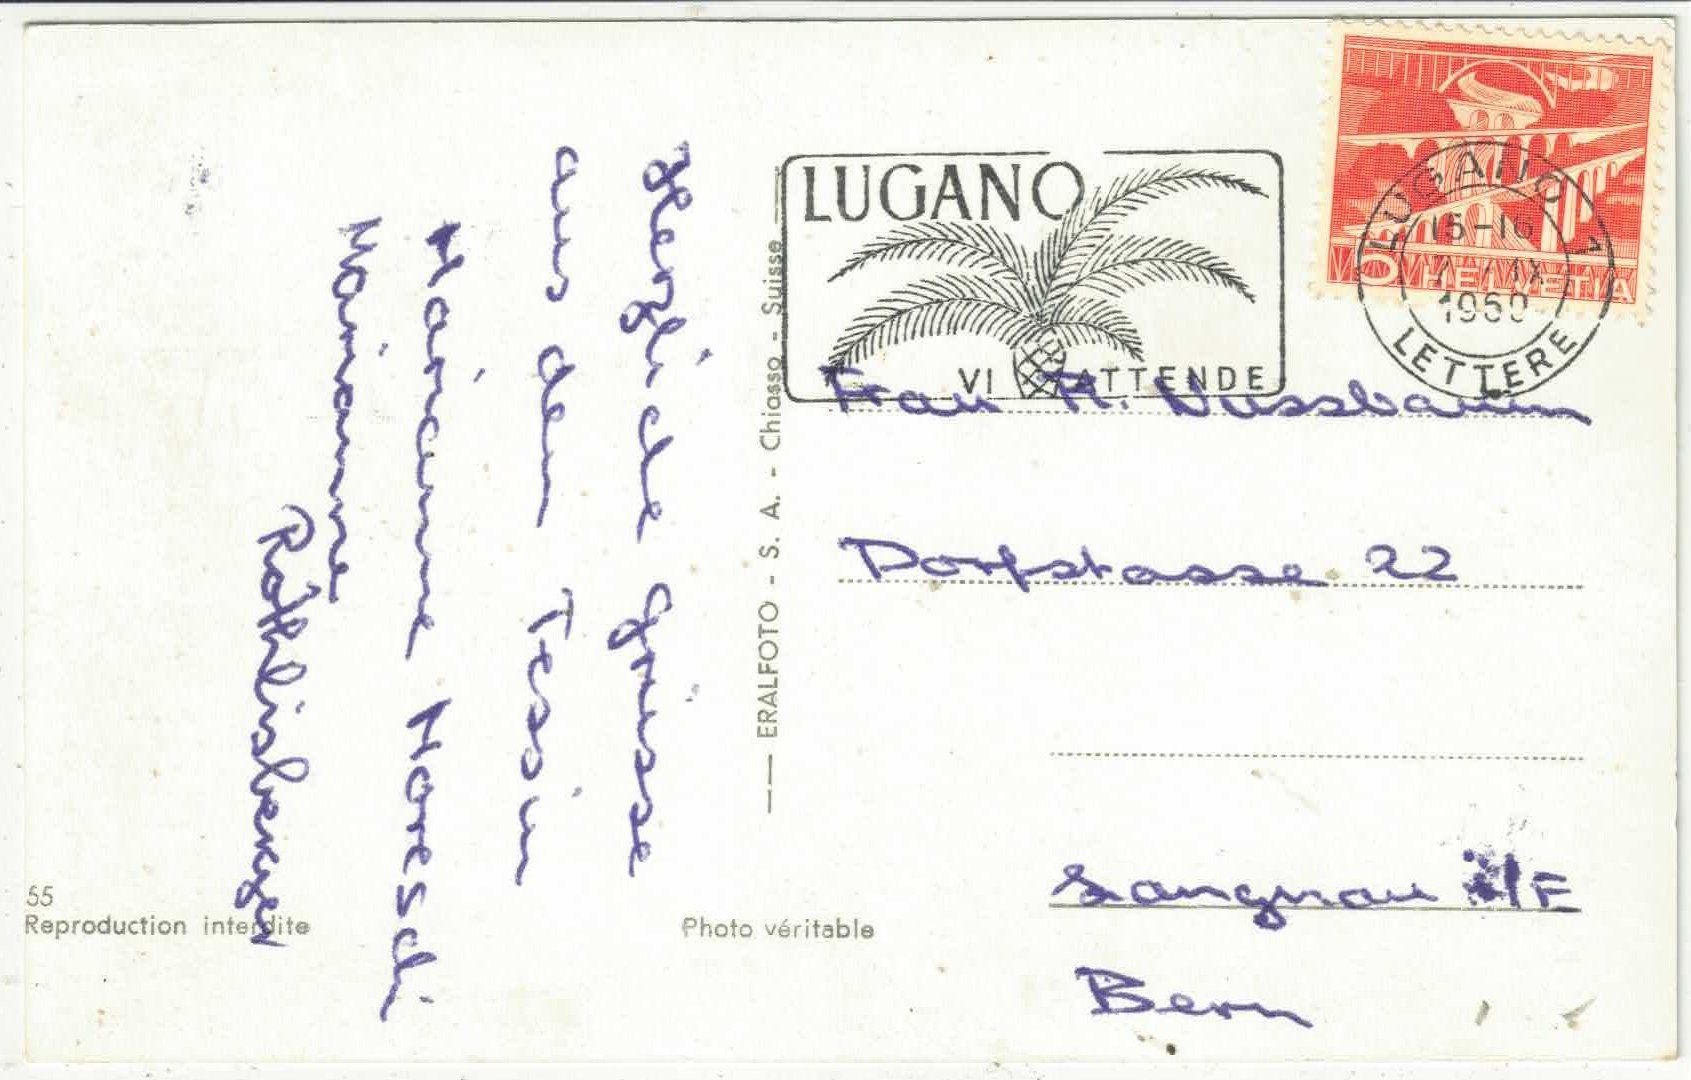 Herzliche Grüsse
aus dem Tessin
Marianne Moreschi
Marianne
Röthlisberger
55
Reproduction interdite
Photo véritable
ERALFOTO - S. A. - Chiasso - Suisse
LUGANO
VI ATTENDE
5 HELVETIA
LUGANO 1
15-16
IX
1960
LETTERE
Frau R. Nussbaum
Dorfstasse 22
Langnau i/E
Bern